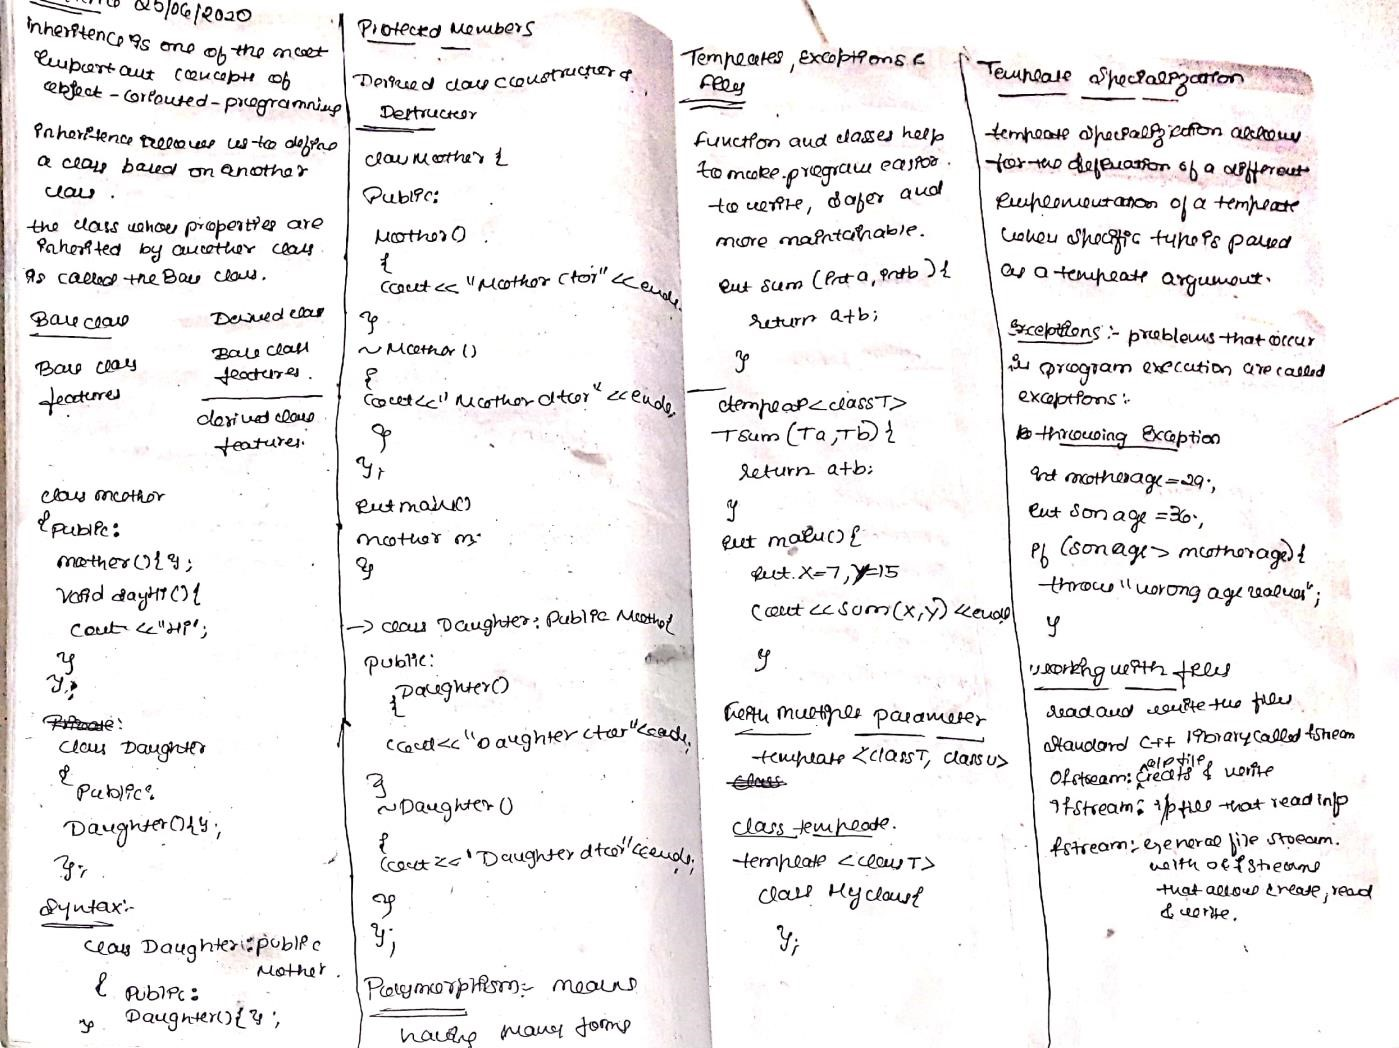 25/06/2020
Inheritence is one of the most
important concepts of
object-oriented-programming
Inheritence allows us to define
a class based on another
class.
the class whose properties are
inherited by another class
is called the Base class.
Base class Derived class
Base class Base class
features features.
derived class
features.
class mother
{ public:
mother(){};
void sayHi(){
cout <<"Hi";
}
};
Private:
class Daughter
{
Public:
Daughter(){};
};
Syntax:-
class Daughter:public
Mother.
{ public:
Daughter(){};
}
Protected Members
Derived class constructor &
Destructor
class Mother {
Public:
Mother()
{
cout<< "Mother ctor" <<endl;
}
~Mother()
{
cout<<"Mother dtor" <<endl;
}
};
int main()
mother m;
}
→ class Daughter: Public Mother
public:
Daughter()
{
cout<<"Daughter ctor"<<endl;
}
~Daughter()
{
cout<<"Daughter dtor"<<endl;
}
};
Polymorphism:- means
having many forms
Templates, exceptions &
files
function and classes help
to make program easier.
to write, safer and
more maintainable.
int sum (int a, int b){
return a+b;
}
templat<class T>
T sum (T a, T b){
return a+b;
}
int main(){
int x=7, y=15
cout << sum(x,y) <<endl
}
With multiple parameter
template <class T, class U>
class
class template.
template <class T>
class Myclass{
};
Template Specialization
template specialization allows
for the defination of a different
implementation of a template
when specific type is passed
as a template argument.
Exceptions :- problems that occur
in program execution are called
exceptions:-
throwing Exception
int motherage=29;
int sonage=36;
if (sonage> motherage){
throw "wrong age values";
}
working with files
read and write the files
Standard C++ library called fstream
Ofstream: o/p file creats & write
Ifstream: i/p files that read info
fstream:- general file stream.
with o&fstreams
that allow create, read
& write.